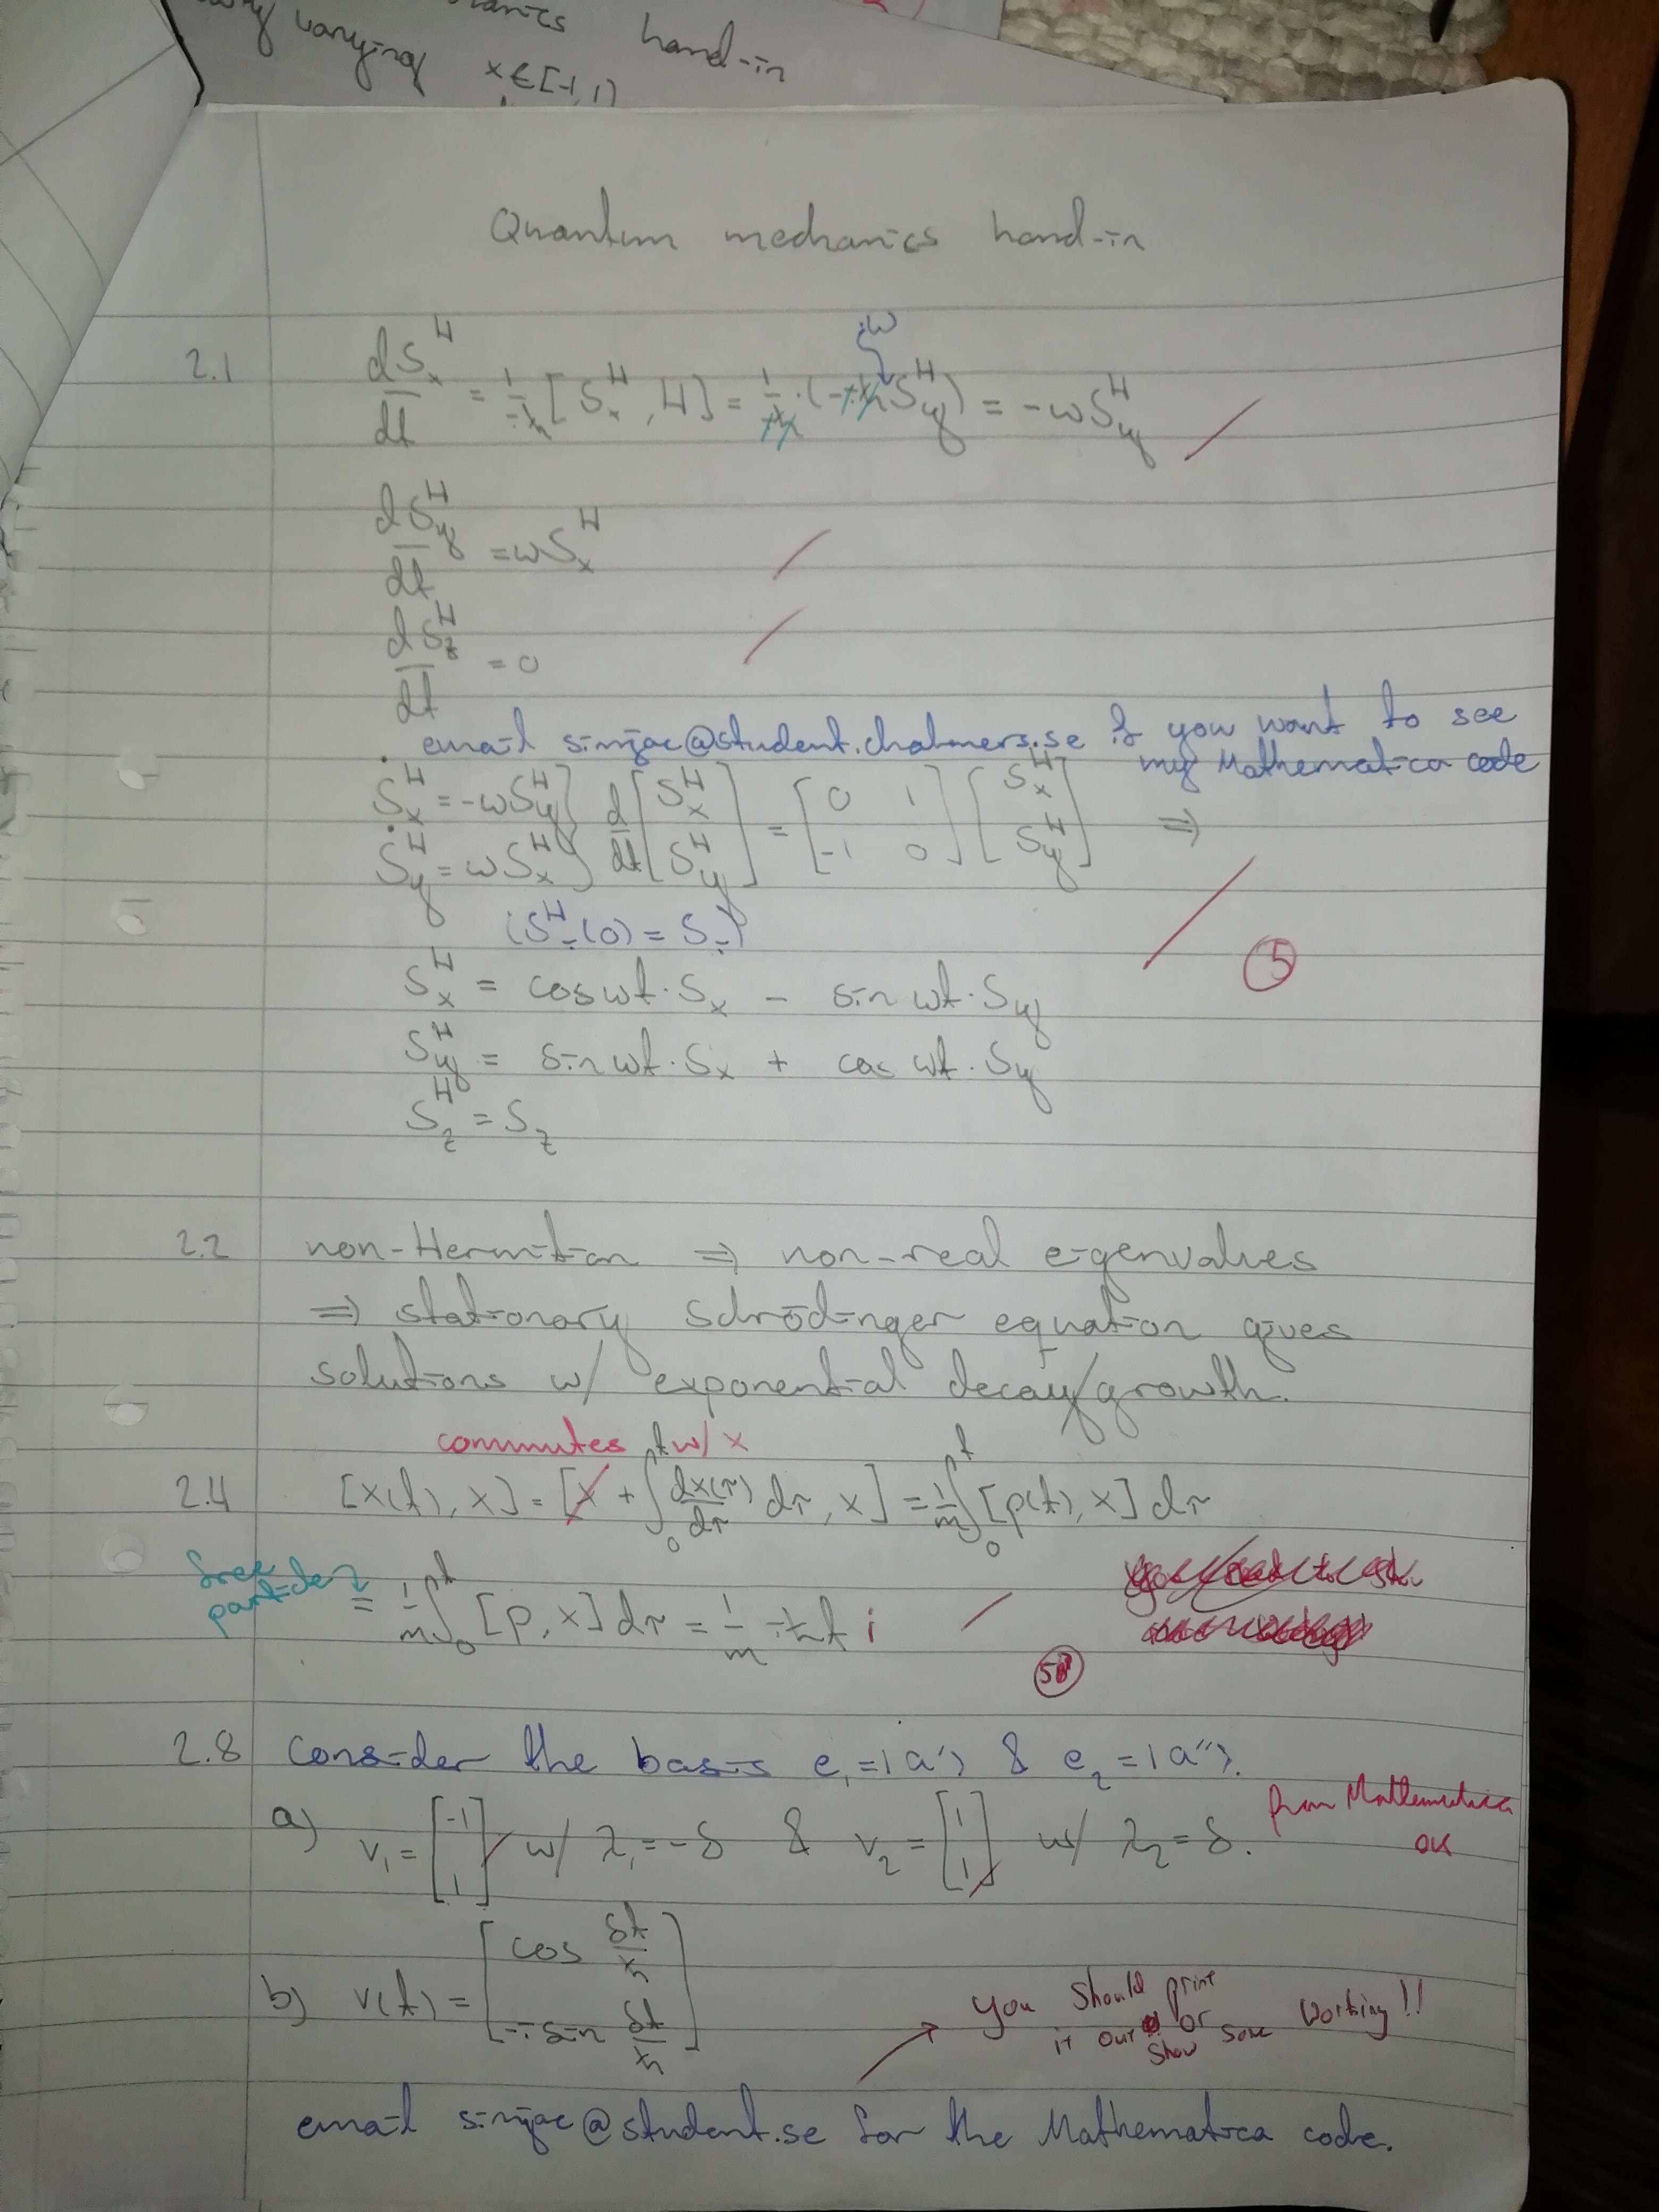 hand-in
varying x∈[-1,1)
Quantum mechanics hand-in
iω
2.1 dSₓᴴ/dt = 1/iħ [Sₓᴴ, H] = 1/iħ · (-iħ S_yᴴ) = -ωS_yᴴ
dS_yᴴ/dt = ωSₓᴴ
dS_zᴴ/dt = 0
email simjac@student.chalmers.se if you want to see
my Mathematica code
Ṡₓᴴ = -ωS_yᴴ } d/dt [Sₓᴴ S_yᴴ] = [0 1 -1 0] [Sₓᴴ S_yᴴ] ⇒
Ṡ_yᴴ = ωSₓᴴ
(Sᵢᴴ(0) = Sᵢ)
5
Sₓᴴ = cos ωt · Sₓ - sin ωt · S_y
S_yᴴ = sin ωt · Sₓ + cos ωt · S_y
S_zᴴ = S_z
2.2 non-Hermitian ⇒ non-real eigenvalues
⇒ stationary Schrödinger equation gives
solutions w/ exponential decay/growth.
commutes w/ x
2.4 [x(t), x] = [x + ∫₀ᵗ dx(τ)/dτ dτ, x] = 1/m ∫₀ᵗ [p(t), x] dτ
free particle
= 1/m ∫₀ᵗ [p, x] dτ = 1/m · iħt i
5
2.8 Consider the basis e₁ = |a'⟩ & e₂ = |a''⟩.
a) v₁ = [-1 1] w/ λ₁ = -δ & v₂ = [1 1] w/ λ₂ = δ.
from Mathematica
ok
b) v(t) = [cos δt/ħ -i sin δt/ħ]
you should print
it out or show some working!!
email simjac@student.se for the Mathematica code.